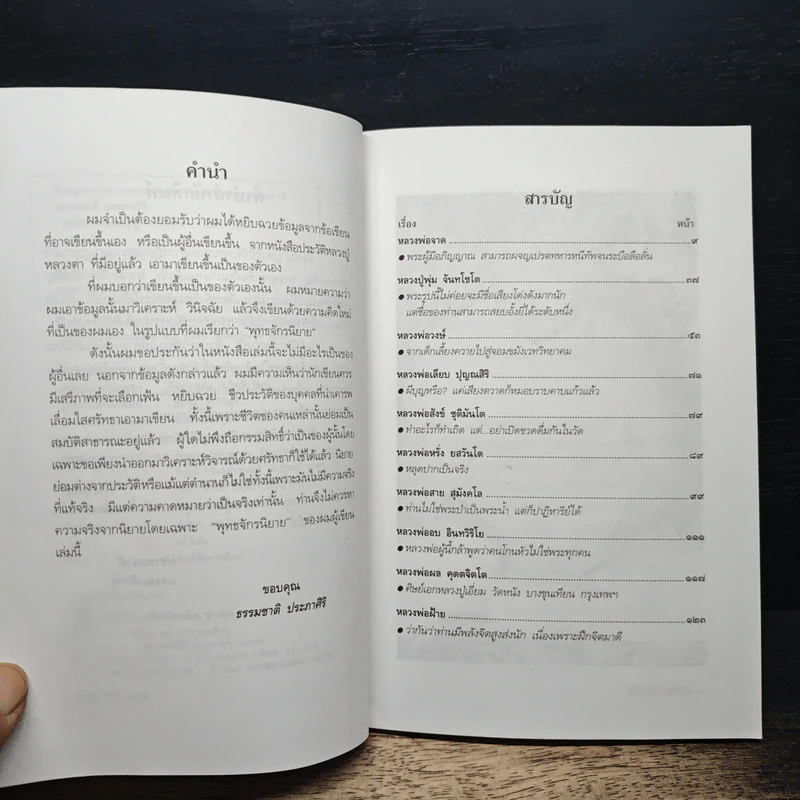 คำนำ
ผมจำเป็นต้องยอมรับว่าผมได้หยิบฉวยข้อมูลจากข้อเขียน
ที่อาจเขียนขึ้นเอง หรือเป็นผู้อื่นเขียนขึ้น จากหนังสือประวัติหลวงปู่
หลวงตา ที่มีอยู่แล้ว เอามาเขียนขึ้นเป็นของตัวเอง
ที่ผมบอกว่าเขียนขึ้นเป็นของตัวเองนั้น ผมหมายความว่า
ผมเอาข้อมูลนั้นมาวิเคราะห์ วินิจฉัย แล้วจึงเขียนด้วยความคิดใหม่
ที่เป็นของผมเอง ในรูปแบบที่ผมเรียกว่า "พุทธจักรนิยาย"
ดังนั้นผมขอประกันว่าในหนังสือเล่มนี้จะไม่มีอะไรเป็นของ
ผู้อื่นเลย นอกจากข้อมูลดังกล่าวแล้ว ผมมีความเห็นว่านักเขียนควร
มีเสรีภาพที่จะเลือกเฟ้น หยิบฉวย ชีวประวัติของบุคคลที่น่าเคารพ
เลื่อมใสศรัทธาเอามาเขียน ทั้งนี้เพราะชีวิตของคนเหล่านั้นย่อมเป็น
สมบัติสาธารณะอยู่แล้ว ผู้ใดไม่พึงถือกรรมสิทธิ์ว่าเป็นของผู้นั้นโดย
เฉพาะขอเพียงนำออกมาวิเคราะห์วิจารณ์ด้วยศรัทธาก็ใช้ได้แล้ว นิยาย
ย่อมต่างจากประวัติหรือแม้แต่ตำนานก็ไม่ใช่ทั้งนี้เพราะมันไม่มีความจริง
ที่แท้จริง มีแต่ความคาดหมายว่าเป็นจริงเท่านั้น ท่านจึงไม่ควรหา
ความจริงจากนิยายโดยเฉพาะ "พุทธจักรนิยาย" ของผมผู้เขียน
เล่มนี้
ขอบคุณ
ธรรมชาติ ประภาศิริ
สารบัญ
เรื่อง หน้า
หลวงพ่อจาด ๙
● พระผู้มีอภิญญาณ สามารถผจญเปรตทหารหนีทัพจนระบือลือลั่น
หลวงปู่พุ่ม จันทโชโต ๓๗
● พระรูปนี้ไม่ค่อยจะมีชื่อเสียงโด่งดังมากนัก
แต่ชื่อของท่านสามารถสยบอั้งยี่ได้ระดับหนึ่ง
หลวงพ่อวงษ์ ๕๓
● จากเด็กเลี้ยงควายไปสู่จอมขมังเวทวิทยาคม
หลวงพ่อเลียบ ปุญณสิริ ๗๑
● ผีบุญหรือ? แค่เสียงตวาดก็หมอบราบคาบแก้วแล้ว
หลวงพ่อสังข์ ชุติมันโต ๗๙
● ทำอะไรก็ทำเถิด แต่...อย่าเปิดขวดดื่มกันในวัด
หลวงพ่อหรั่ง ยสวันโต ๘๙
● หลุดปากเป็นจริง
หลวงพ่อสาย สุมังคโล ๙๙
● ท่านไม่ใช่พระป่าเป็นพระน้ำ แต่ก็ปาฏิหาริย์ได้
หลวงพ่ออบ อินทวิริโย ๑๑๑
● หลวงพ่อผู้นี้กล้าพูดว่าคนโกนหัวไม่ใช่พระทุกคน
หลวงพ่อผล คุตตจิตโต ๑๑๗
● ศิษย์เอกหลวงปู่เอี่ยม วัดหนัง บางขุนเทียน กรุงเทพฯ
หลวงพ่อฝ้าย ๑๒๓
● ว่ากันว่าท่านมีพลังจิตสูงส่งนัก เนื่องเพราะฝึกจิตมาดี